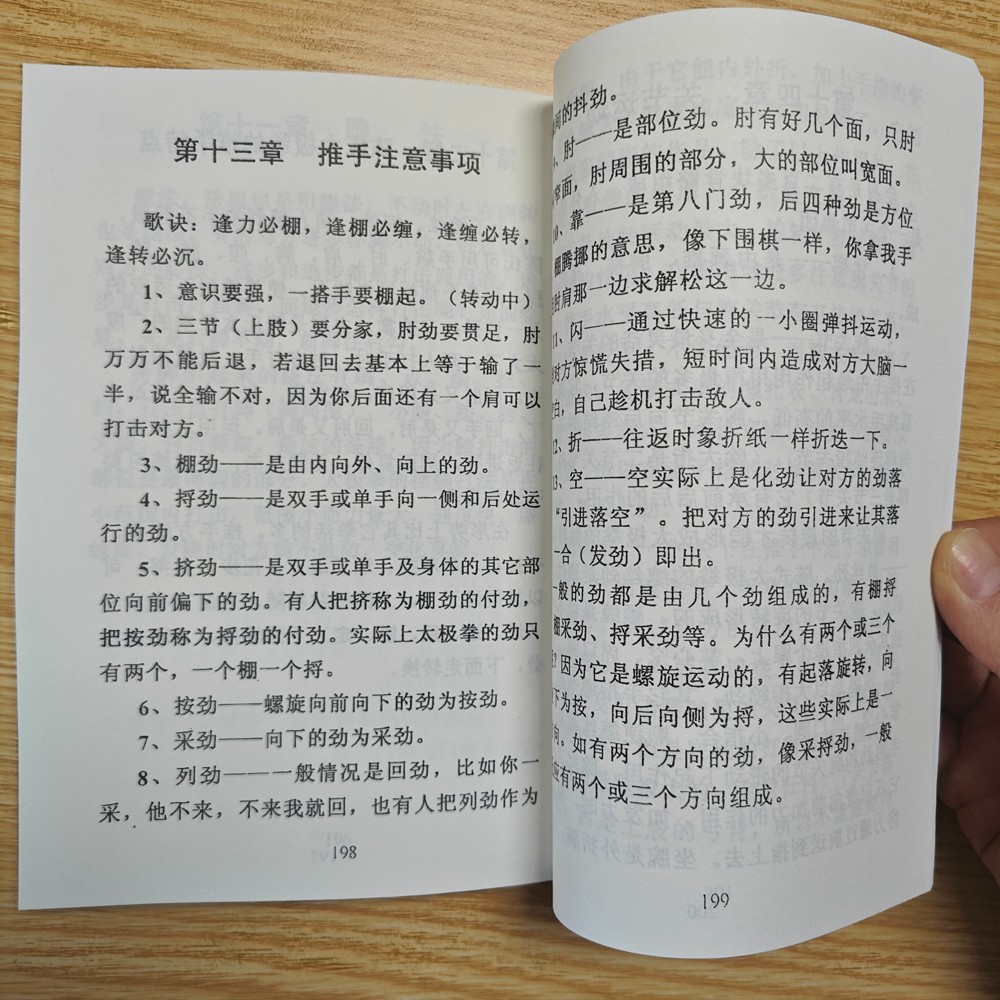 第十三章 推手注意事项
歌诀：逢力必棚，逢棚必缠，逢缠必转，
逢转必沉。
1、意识要强，一搭手要棚起。（转动中）
2、三节（上肢）要分家，肘劲要贯足，肘
万万不能后退，若退回去基本上等于输了一
半，说全输不对，因为你后面还有一个肩可以
打击对方。
3、棚劲——是由内向外、向上的劲。
4、捋劲——是双手或单手向一侧和后处运
行的劲。
5、挤劲——是双手或单手及身体的其它部
位向前偏下的劲。有人把挤称为棚劲的付劲，
把按劲称为捋劲的付劲。实际上太极拳的劲只
有两个，一个棚一个捋。
6、按劲——螺旋向前向下的劲为按劲。
7、采劲——向下的劲为采劲。
8、列劲——一般情况是回劲，比如你一
采，他不来，不来我就回，也有人把列劲作为
198
间的抖劲。
、肘——是部位劲。肘有好几个面，只肘
窄面，肘周围的部分，大的部位叫宽面。
10、靠——是第八门劲，后四种劲是方位
棚腾挪的意思，像下围棋一样，你拿我手
肘肩那一边求解松这一边。
11、闪——通过快速的一小圈弹抖运动，
对方惊慌失措，短时间内造成对方大脑一
白，自己趁机打击敌人。
12、折——往返时象折纸一样折迭一下。
13、空——空实际上是化劲让对方的劲落
“引进落空”。把对方的劲引进来让其落
一合（发劲）即出。
一般的劲都是由几个劲组成的，有棚捋
棚采劲、捋采劲等。为什么有两个或三个
？因为它是螺旋运动的，有起落旋转，向
下为按，向后向侧为捋，这些实际上是一
向。如有两个方向的劲，像采捋劲，一般
应有两个或三个方向组成。
199